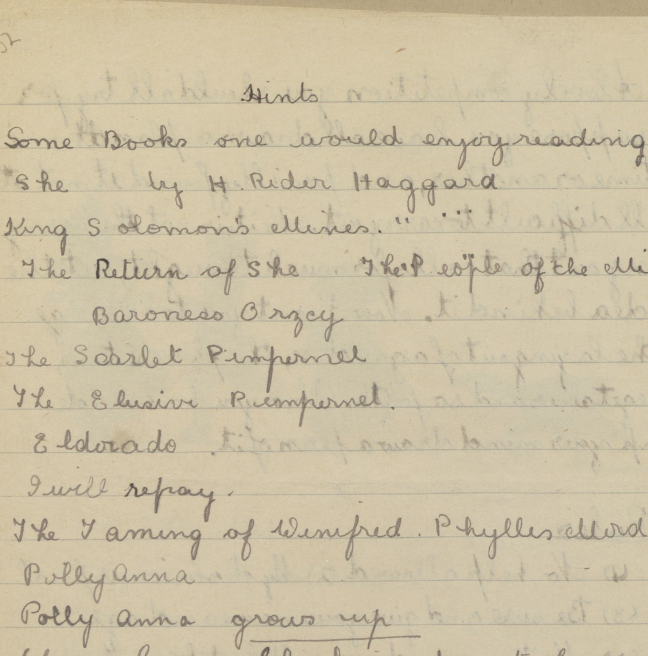 52
Hints
Some Books one would enjoy reading
She by H. Rider Haggard
King Solomon's Mines. " " "
The Return of She The People of the Mi
Baroness Orzcy
The Scarlet Pimpernel
The Elusive Pimpernel.
Eldorado
I will repay.
The Taming of Winifred. Phylles Mord
Polly Anna
Polly Anna grows up